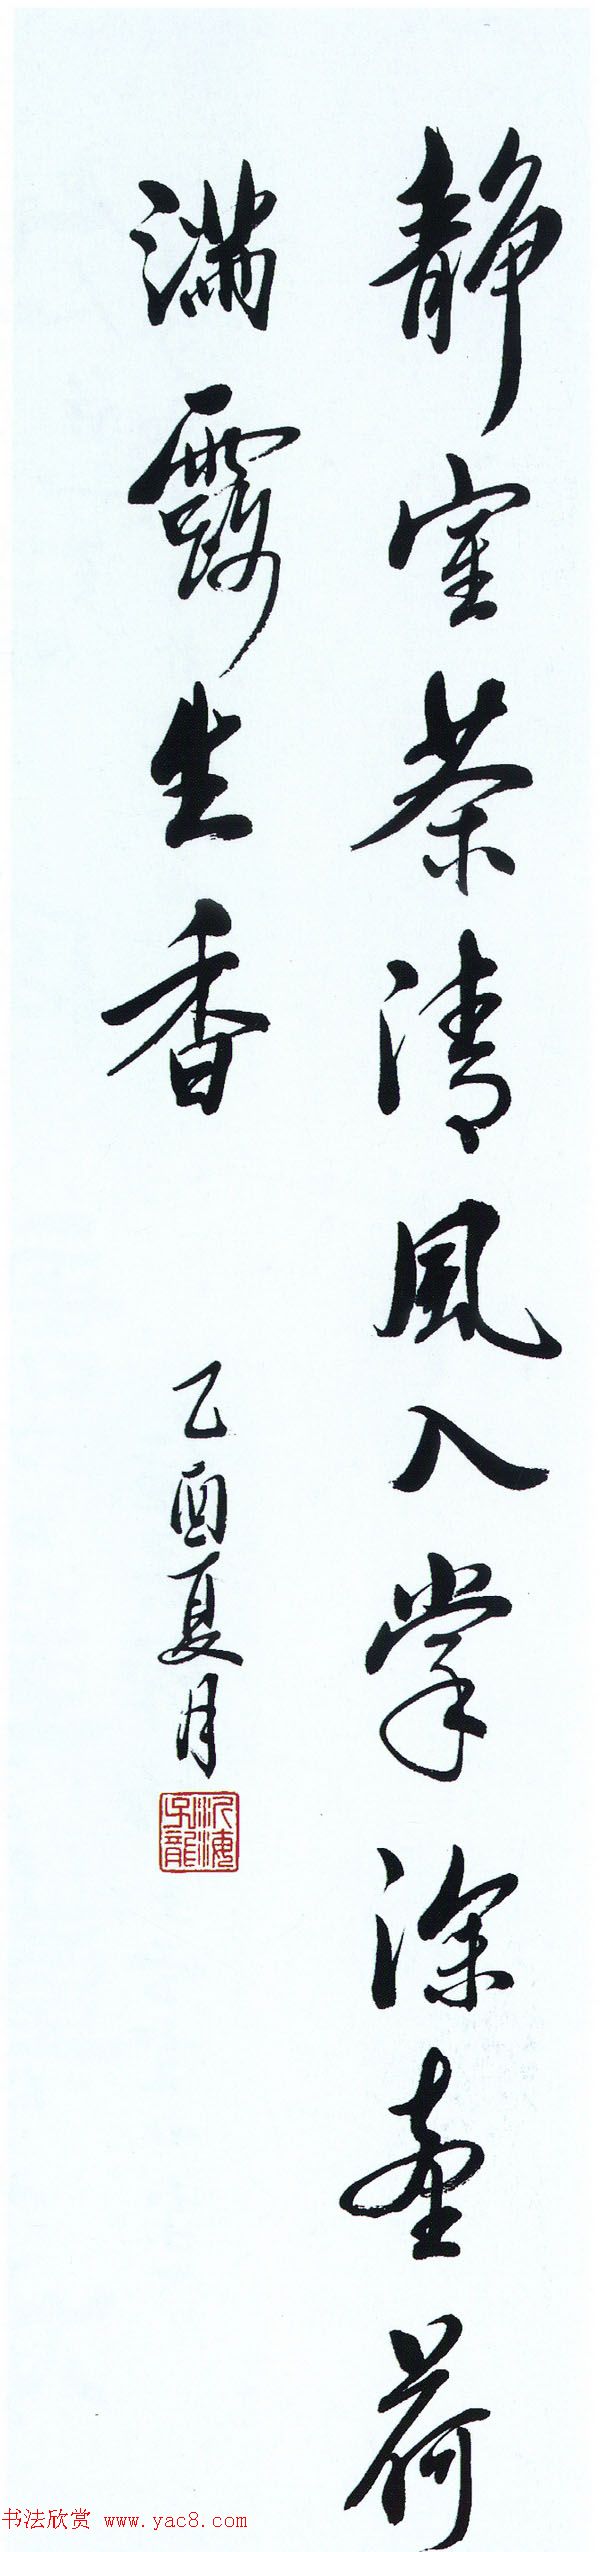 静室茶清风入掌深台荷
满露生香
乙酉夏月
书法欣赏 www.yac8.com